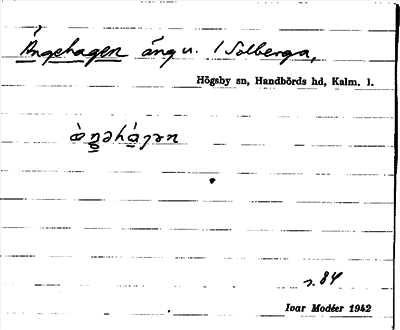 Ängehagen äng u. / Solberga,
Högsby sn, Handbörds hd, Kalm. l.
s. 84
Ivar Modéer 1942